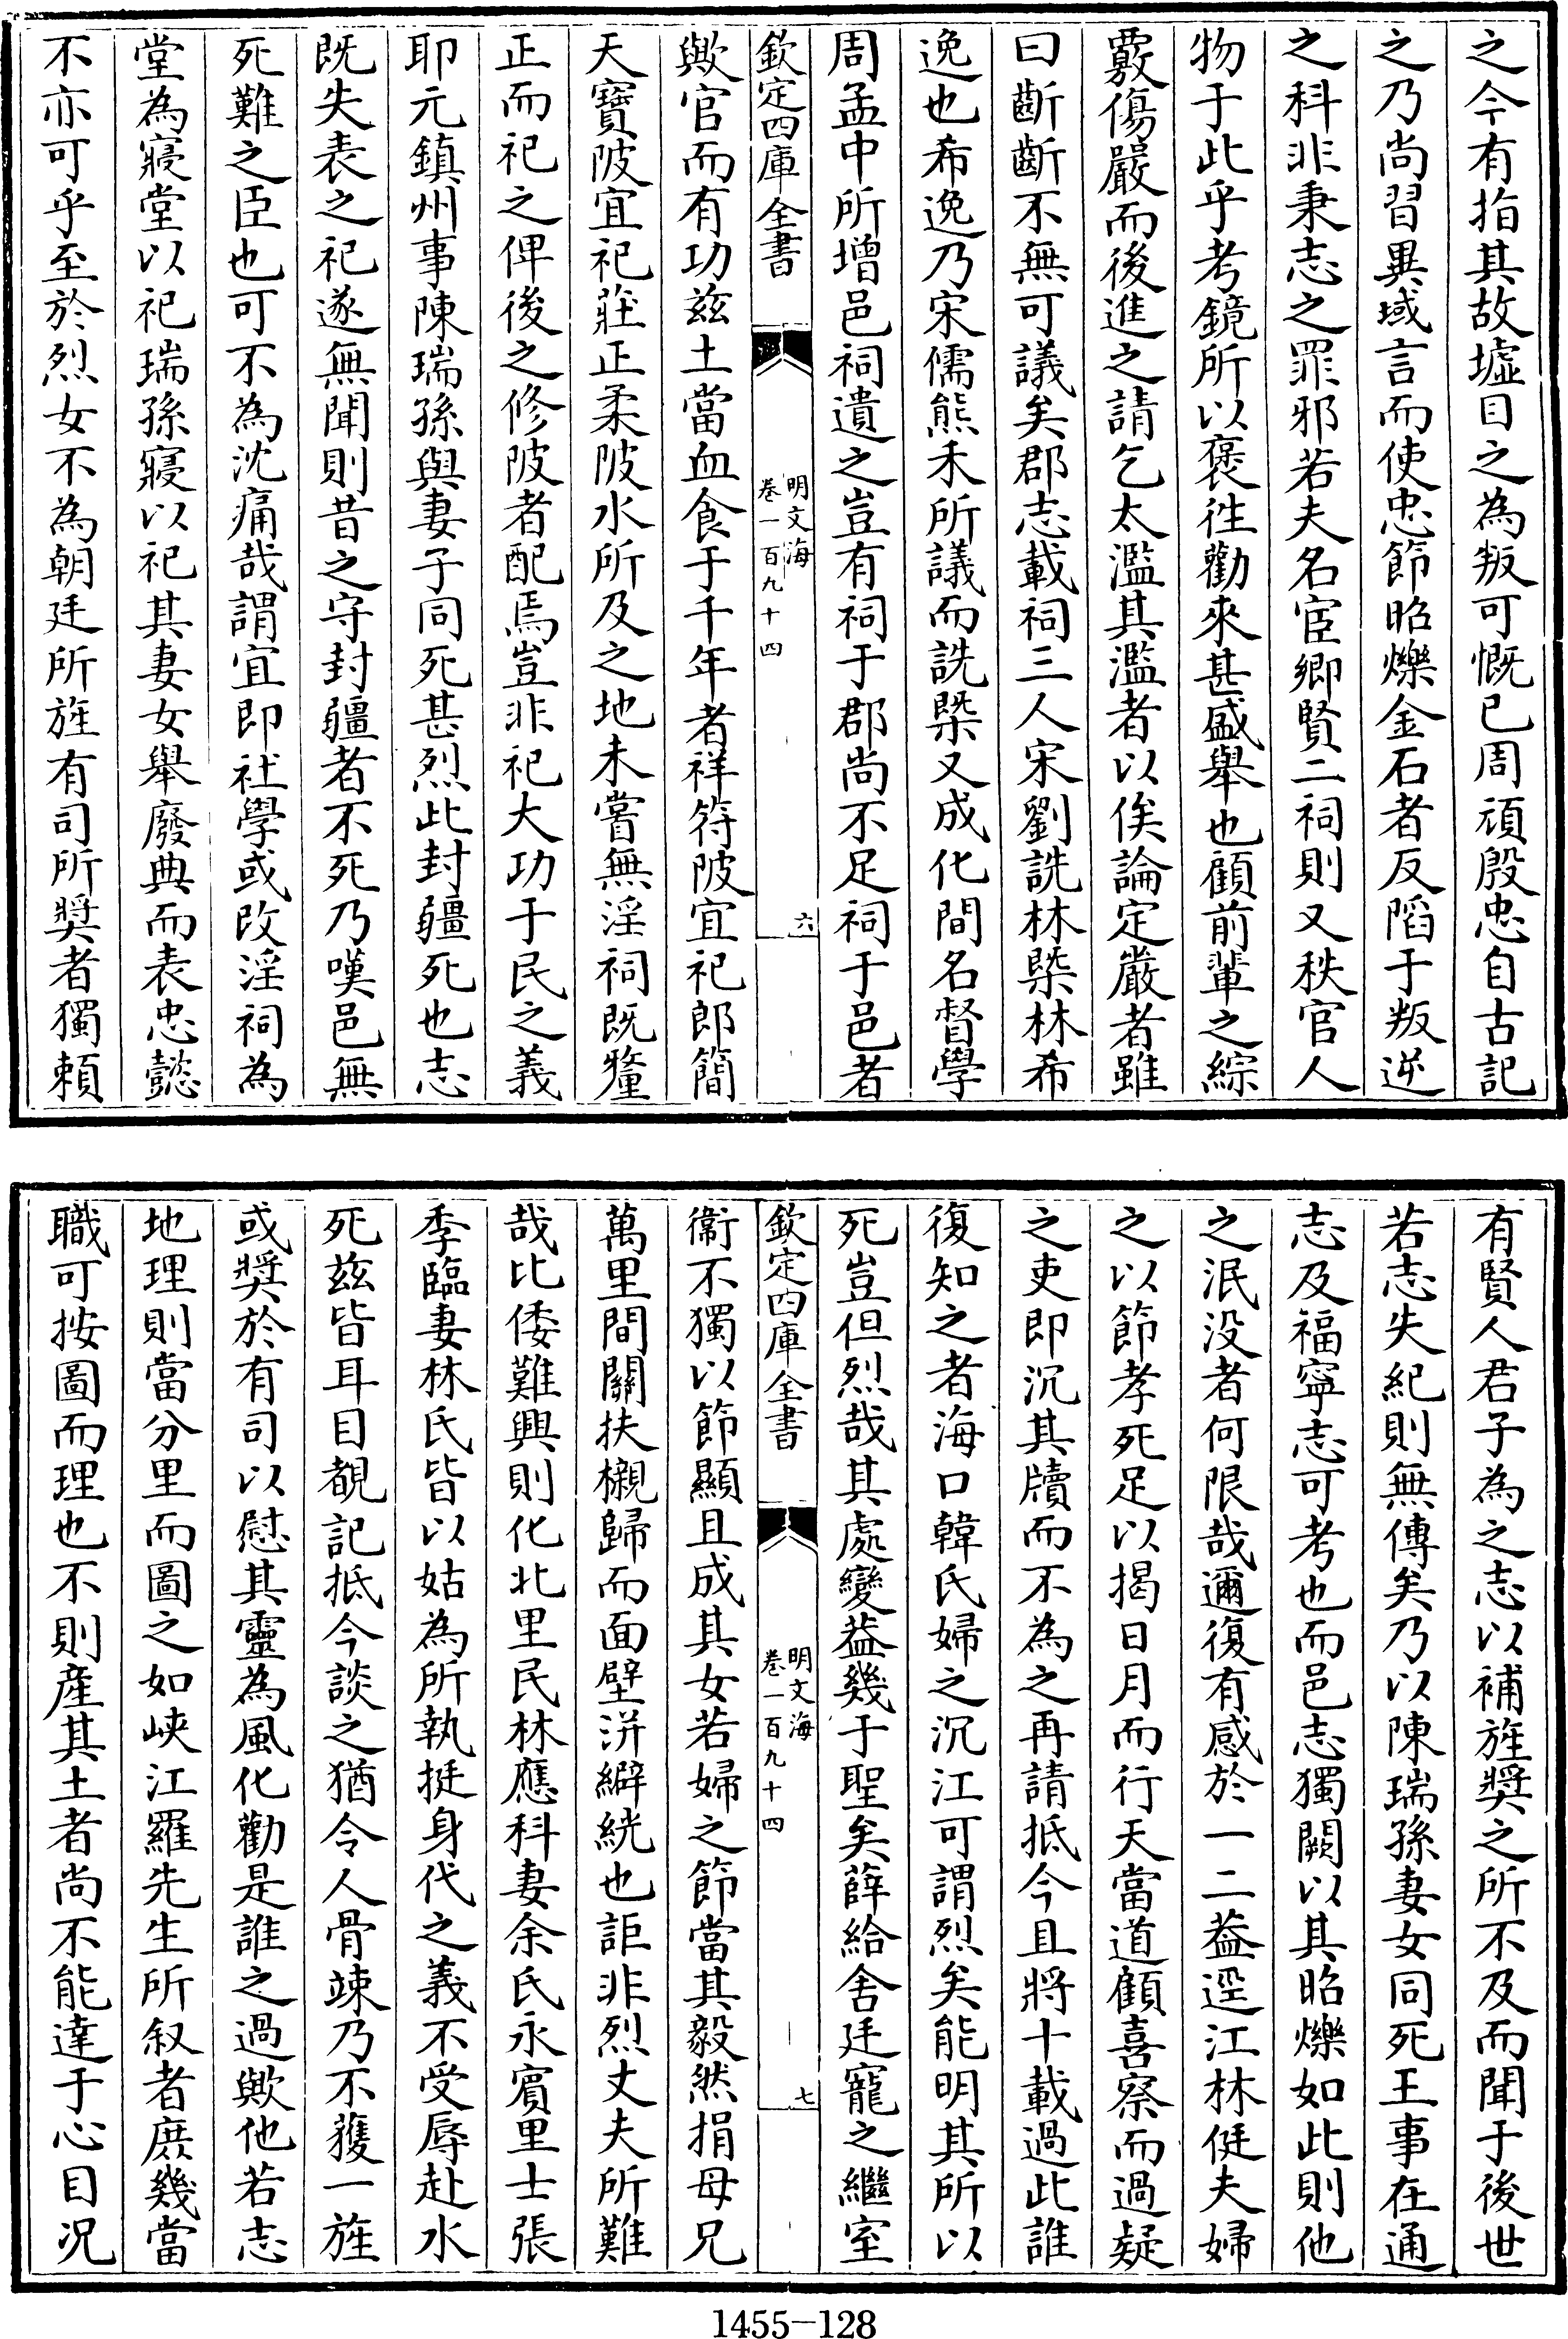 之今有指其故墟目之為叛可慨已周頑殷忠自古記
之乃尚習異域言而使忠節昭爍金石者反䧟于叛逆
之科非秉志之罪邪若夫名宦鄉賢二祠則又秩官人
物于此乎考鏡所以褒徃勸來甚盛舉也顧前輩之綜
覈傷嚴而後進之請乞太濫其濫者以俟論定嚴者雖
曰齗齗不無可議矣郡志載祠三人宋劉詵林槩林希
逸也希逸乃宋儒熊禾所議而詵槩又成化間名督學
周孟中所增邑祠遺之豈有祠于郡尚不足祠于邑者
欽定四庫全書
明文海
卷一百九十四
六
歟官而有功茲土當血食于千年者祥符陂宜祀郎簡
天寶陂宜祀莊正柔陂水所及之地未嘗無淫祠既釐
正而祀之俾後之修陂者配焉豈非祀大功于民之義
耶元鎮州事陳瑞孫與妻子同死甚烈此封疆死也志
既失表之祀遂無聞則昔之守封疆者不死乃嘆邑無
死難之臣也可不為沈痛哉謂宜即社學或改淫祠為
堂為寢堂以祀瑞孫寢以祀其妻女舉廢典而表忠懿
不亦可乎至於烈女不為朝廷所旌有司所奬者獨頼
有賢人君子為之志以補旌奬之所不及而聞于後世
若志失紀則無傳矣乃以陳瑞孫妻女同死王事在通
志及福寧志可考也而邑志獨闕以其昭爍如此則他
之泯没者何限哉邇復有感於一二葢逕江林侹夫婦
之以節孝死足以揭日月而行天當道顧喜察而過疑
之吏即沉其牘而不為之再請抵今且將十載過此誰
復知之者海口韓氏婦之沉江可謂烈矣能明其所以
死豈但烈哉其處變葢幾于聖矣薛給舍廷寵之繼室
欽定四庫全書
明文海
卷一百九十四
七
衞不獨以節顯且成其女若婦之節當其毅然捐母兄
萬里間關扶櫬歸而面壁洴澼絖也詎非烈丈夫所難
哉比倭難興則化北里民林應科妻余氏永賓里士張
季臨妻林氏皆以姑為所執挺身代之義不受辱赴水
死茲皆耳目覩記抵今談之猶令人骨竦乃不獲一旌
或奬於有司以慰其靈為風化勸是誰之過歟他若志
地理則當分里而圖之如峽江羅先生所叙者庶幾當
職可按圖而理也不則産其土者尚不能達于心目况
1455-128